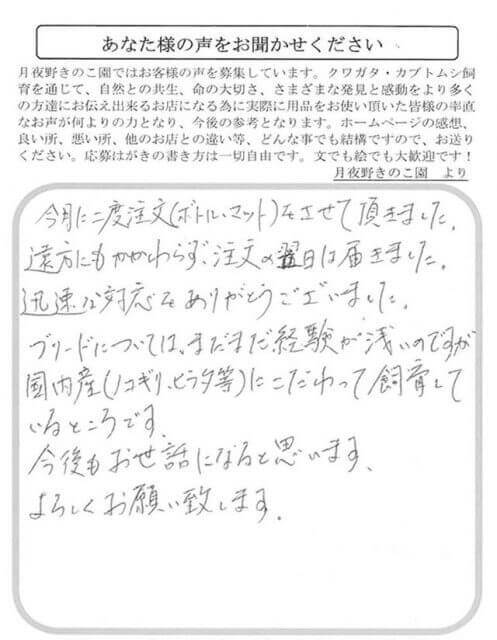 あなた様の声をお聞かせください
月夜野きのこ園ではお客様の声を募集しています。クワガタ・カブトムシ飼
育を通じて、自然との共生、命の大切さ、さまざまな発見と感動をより多く
の方達にお伝え出来るお店になる為に実際に用品をお使い頂いた皆様の率直
なお声が何よりの力となり、今後の参考となります。ホームページの感想、
良い所、悪い所、他のお店との違い等、どんな事でも結構ですので、お送り
ください。応募はがきの書き方は一切自由です。文でも絵でも大歓迎です！
月夜野きのこ園　より
今月に二度注文(ボトル・マット)をさせて頂きました。
遠方にもかかわらず、注文の翌日は届きました。
迅速な対応をありがとうございました。
ブリードについては、まだまだ経験が浅いのですが
国内産(ノコギリ、ヒラタ等)にこだわって飼育して
いるところです。
今後もお世話になると思います、
よろしくお願い致します。